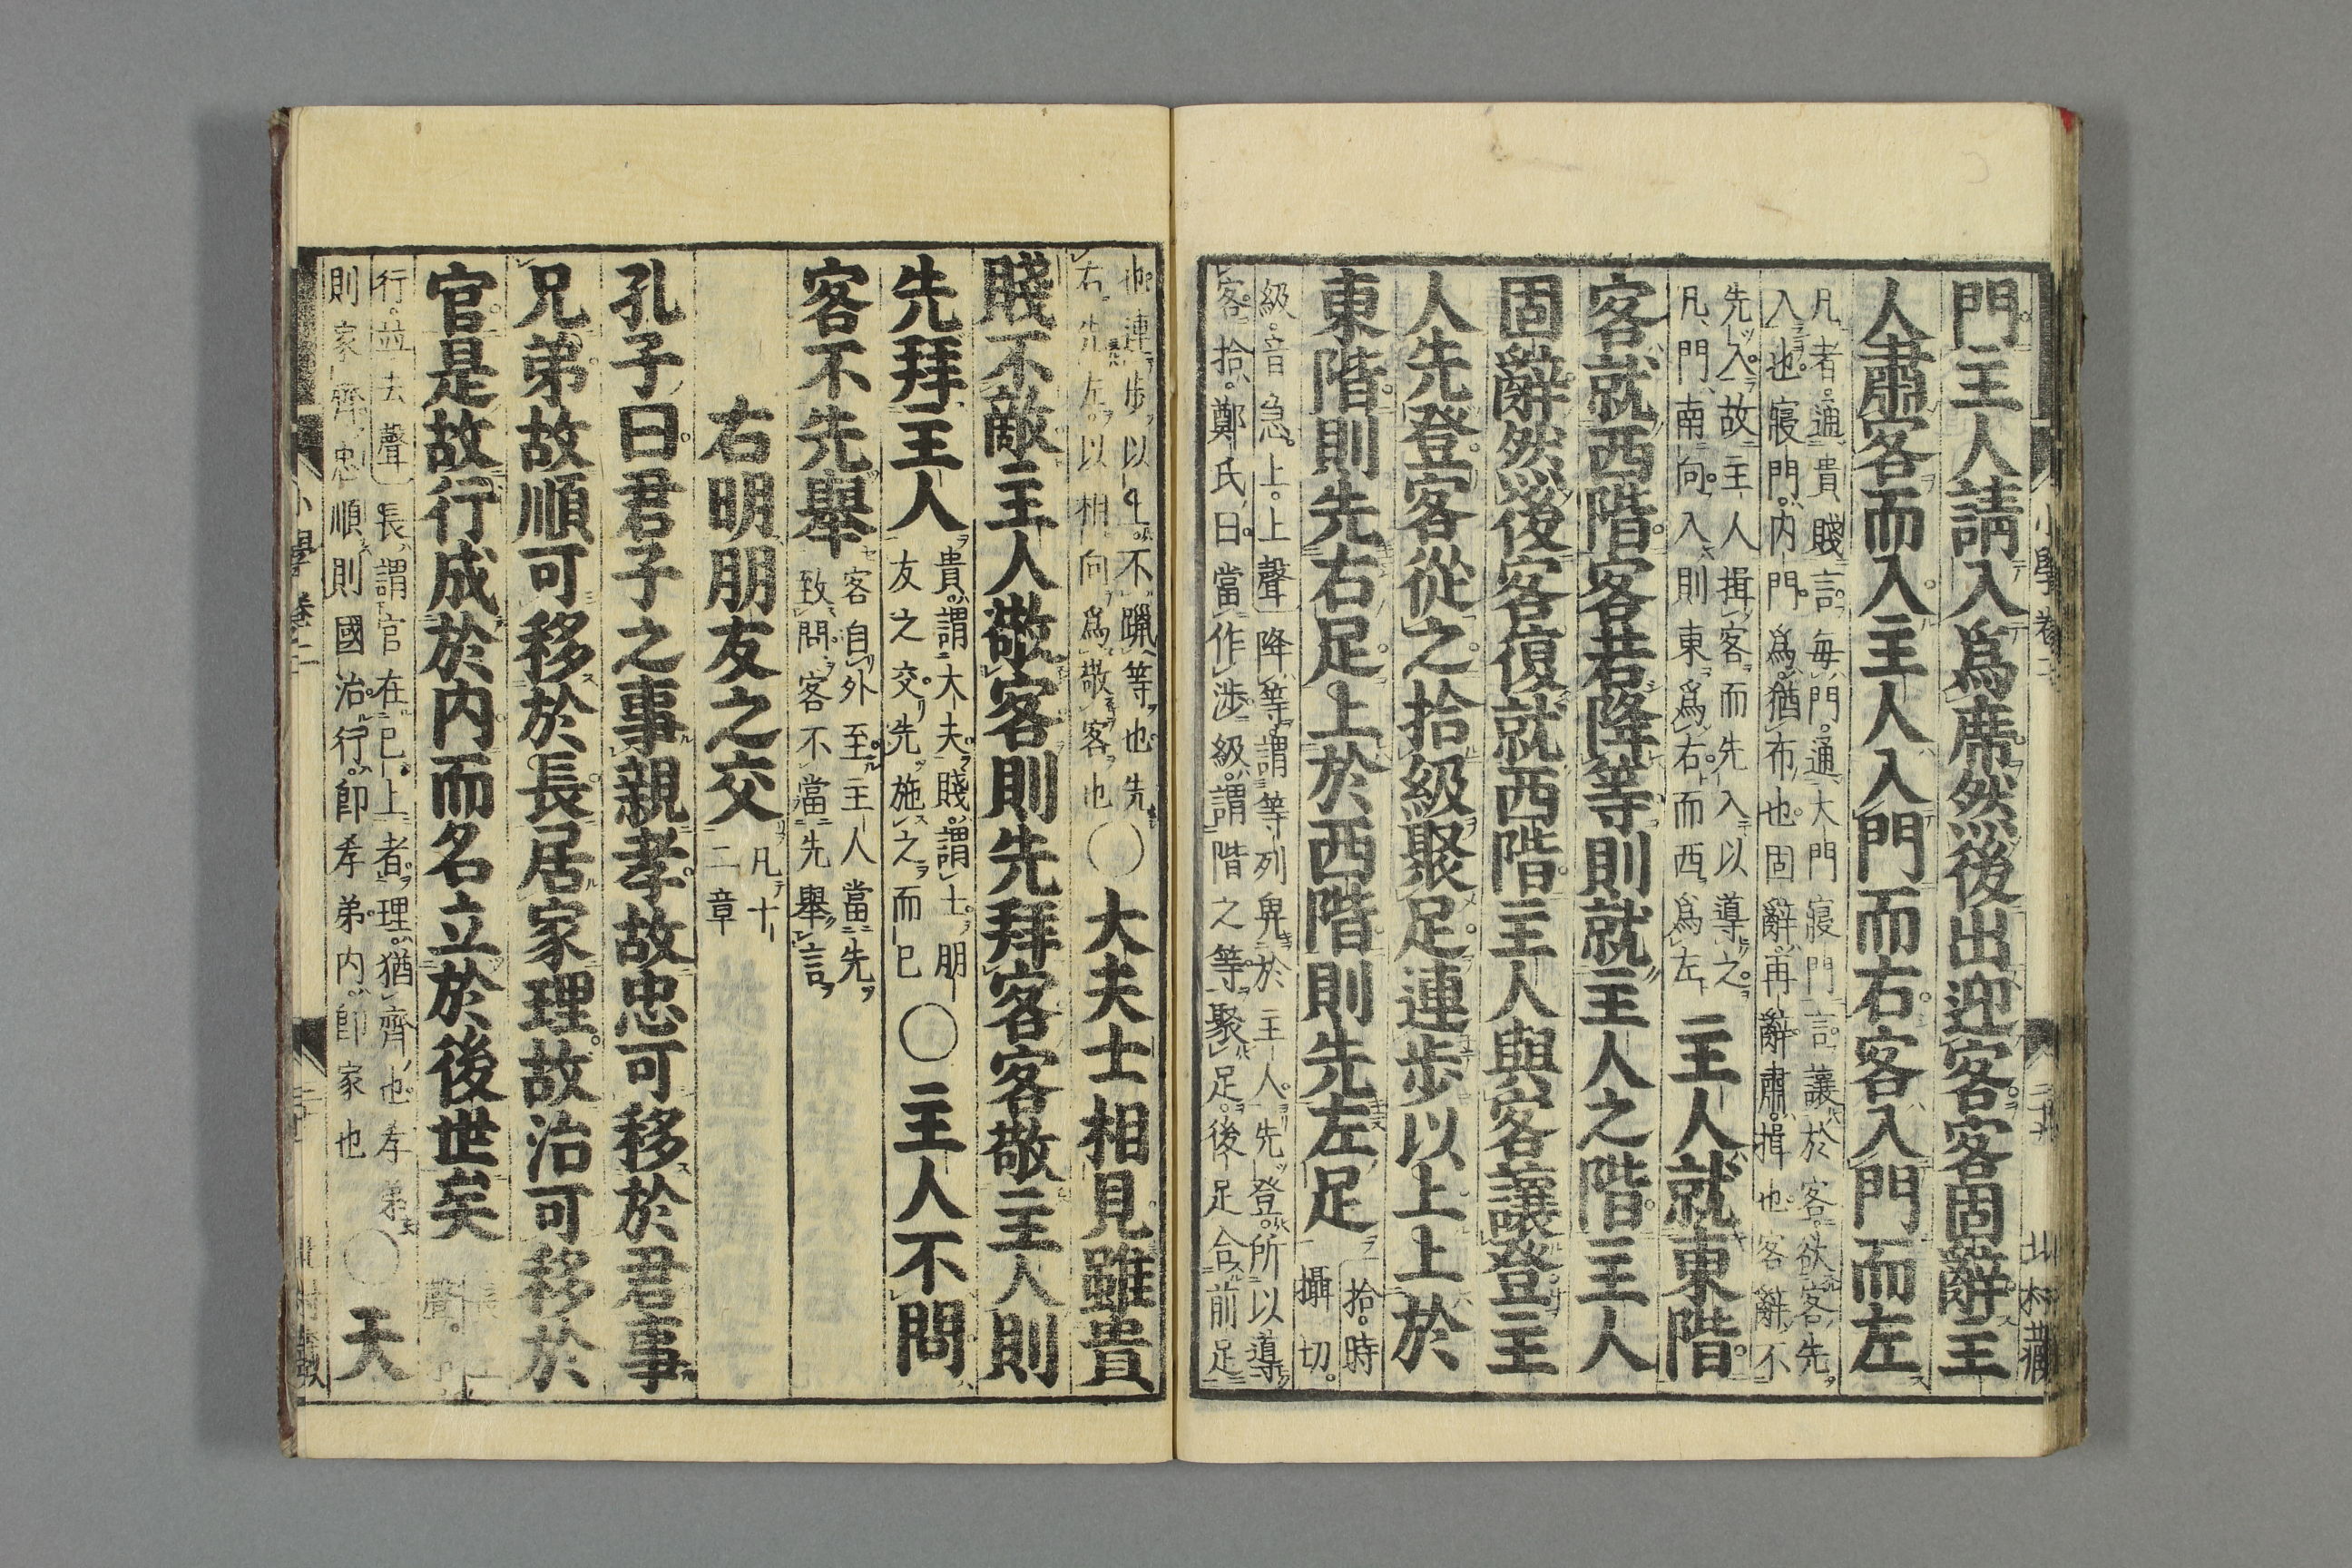 小學卷二
北村藏
門主人請入爲席然後出迎客客固辭主
人肅客而入主人入門而右客入門而左
凡者通貴賤言毎門通大門寢門言讓於客欲客先
入也寢門内門爲猶布也固辭再辭肅揖也客辭不
先入故主人揖客而先入以導之
凡門南向入則東爲右而西爲左
主人就東階
客就西階客若降等則就主人之階主人
固辭然後客復就西階主人與客讓登主
人先登客從之拾級聚足連歩以上上於
東階則先右足上於西階則先左足
拾時
攝切
級音急上上聲降等謂等列卑於主人先登所以導
客拾鄭氏曰當作渉級謂階之等聚足後足合前足
也連歩以上不躐等也先
右先左以相向爲敬客也
○大夫士相見雖貴
賤不敵主人敬客則先拜客客敬主人則
先拜主人
貴謂大夫賤謂士朋
友之交先施之而已
○主人不問
客不先舉
客自外至主人當先
致問客不當先舉言
右明朋友之交
凡十
二章
孔子曰君子之事親孝故忠可移於君事
兄弟故順可移於長居家理故治可移於
官是故行成於内而名立於後世矣
行並去聲長謂官在己上者理猶齊也孝弟
則家齊忠順則國治行卽孝弟内卽家也
○天
小學卷二